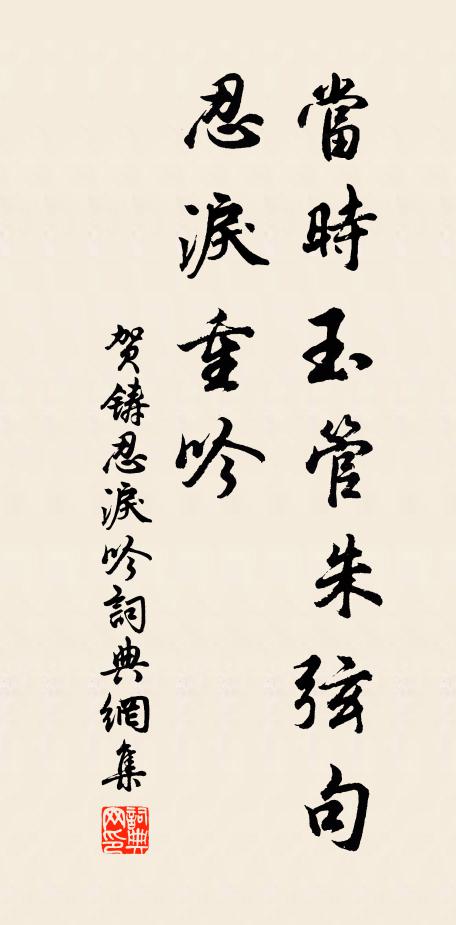 當時玉管朱弦句
忍淚重吟
賀鑄忍淚吟詞典網集
詞典
网印